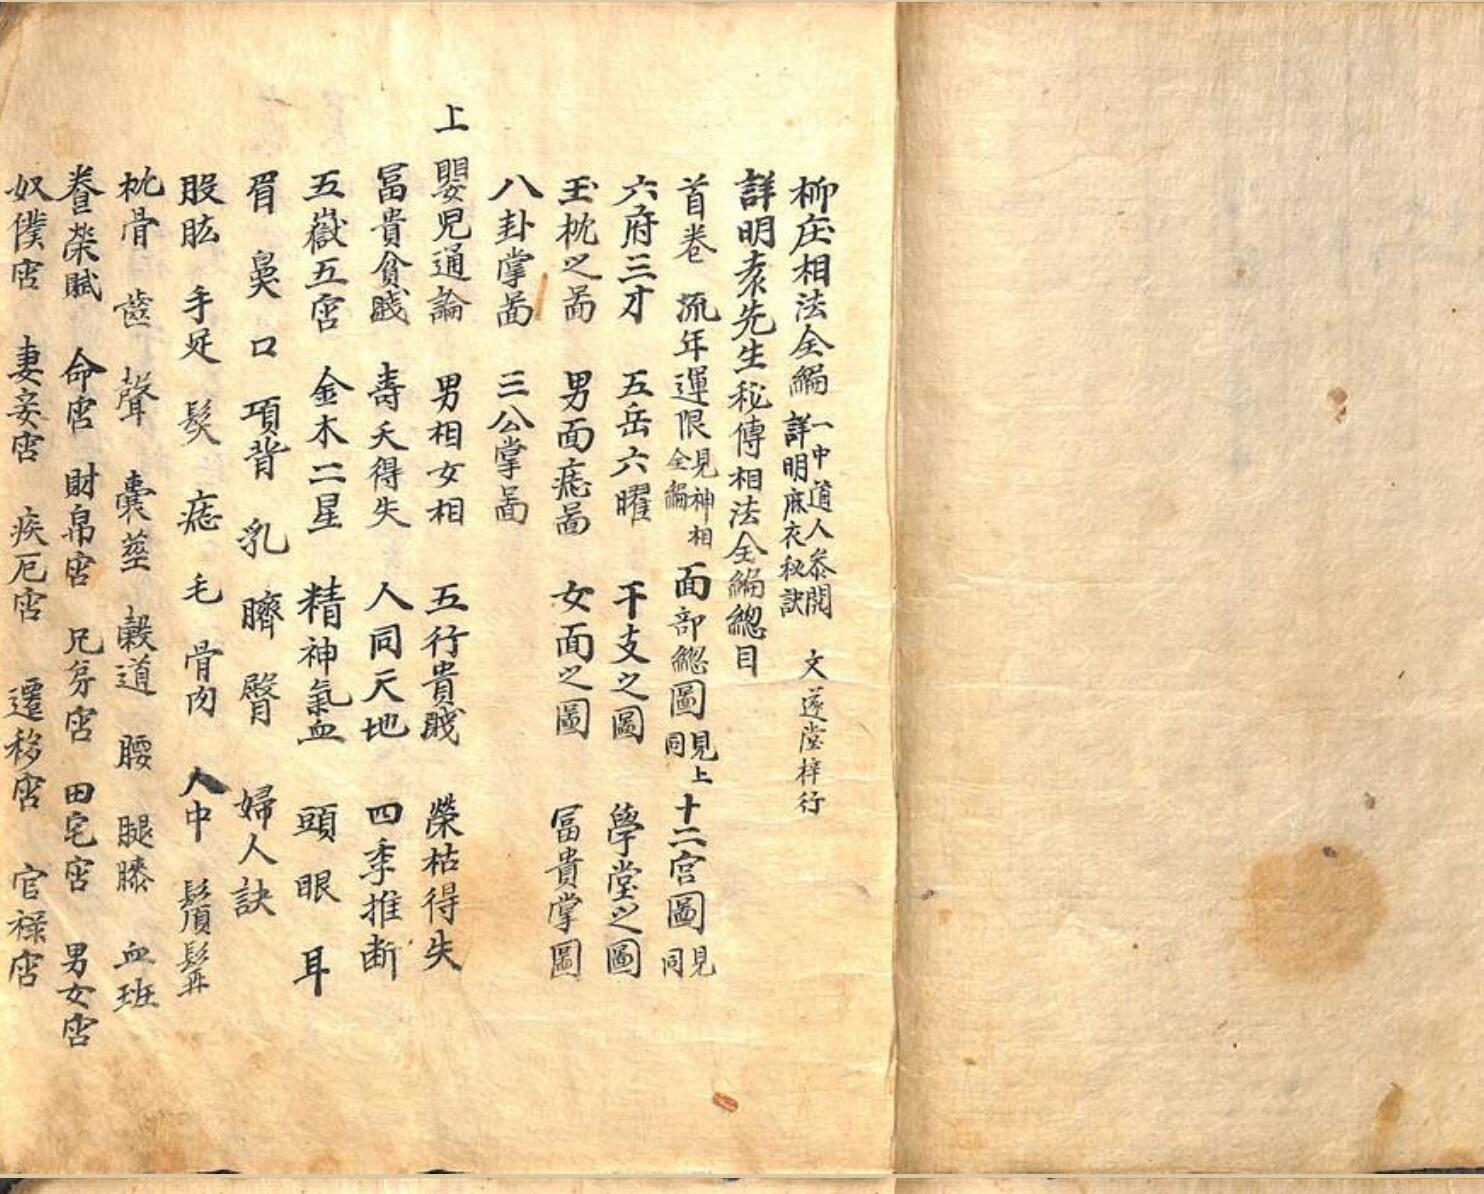 柳庄相法全編 一中道人叅閱 詳明麻衣秘訣 文蓬堂梓行
詳明袁先生秘傳相法全編總目
首卷 流年運限 見神相全編 面部總圖 見上同 十二宮圖 見同
六府三才 五岳六曜 干支之圖 學堂之圖
玉枕之啚 男面痣啚 女面之圖 冨貴掌圖
八卦掌啚 三公掌啚
上 嬰児通論 男相女相 五行貴賎 榮枯得失
冨貴貧賎 壽夭得失 人同天地 四季推断
五嶽五宮 金木二星 精神氣血 頭 眼 耳
眉 鼻 口 項背 乳 臍 臀 婦人訣
股肱 手足 髮 痣 毛 骨肉 人中 鬚髯
枕骨 齒 聲 囊莖 穀道 腰 腿膝 血班
養榮賦 命宮 財帛宮 兄弟宮 田宅宮 男女宮
奴僕宮 妻妾宮 疾厄宮 遷移宮 官禄宮